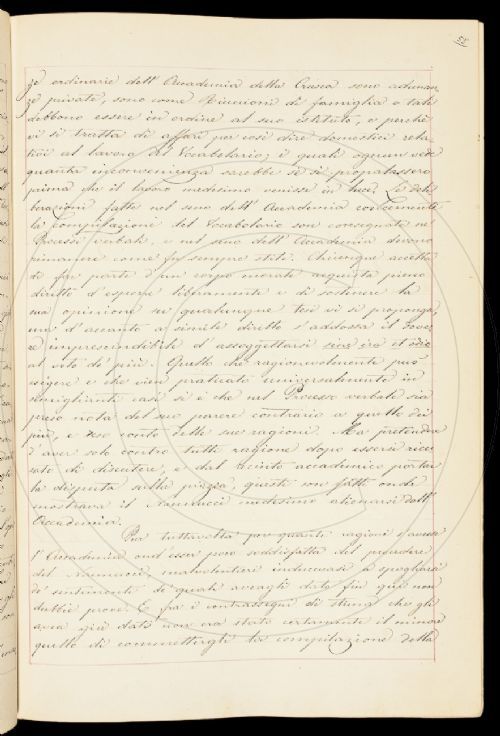 58
ze ordinarie dell' Accademia della Crusca sono adunan,
ze private, sono come riunioni di famiglia o tali
debbono essere in ordine al suo istituto, e perchè
vi si tratta di affari per così dire domestici rela,
tivi al lavoro del Vocabolario; i quali ognun vede
quanta inconvenienza sarebbe se si propalassero
prima che il lavoro medesimo venisse in luce. Le deli,
berazioni fatte nel seno dell' Accademia concernenti
la compilazione del Vocabolario son consegnate ne'
Processi verbali, e nel seno dell' Accademia devono
rimanere come fu sempre stile. Chiunque accetta
di far parte d'un corpo morale acquista pieno
diritto d'esporre liberamente e di sostenere la
sua opinione su qualunque tesi vi si proponga,
ma d'accanto a simile diritto s'addossa il dove,
re imprescindibile d'assoggettarsi sine ira et odio
al voto de' più. Quello che ragionevolmente può
esigere e che vien praticato universalmente in
simiglianti casi si è che nel Processo verbale sia
preso nota del suo parere contrario a quello dei
più, e reso conto delle sue ragioni. Ma pretendere
d'aver solo contro tutti ragione dopo essersi ricu,
sato di discutere, e dal Recinto accademico portar
la disputa sulla piazza, questi son fatti onde
mostrava il Nannucci medesimo alienarsi dall'
Accademia.
Per tuttavolta per quante ragioni avesse
l'Accademia ond'esser poco soddisfatta del procedere
del Nannucci, malvolentieri inducevasi a spogliarsi
de' sentimenti de' quali aveagli dato fin qui non
dubbie prove. E fra i contrassegni di stima che gli
avea già dato non era stato certamente il minore
quello di commettergli la compilazione della